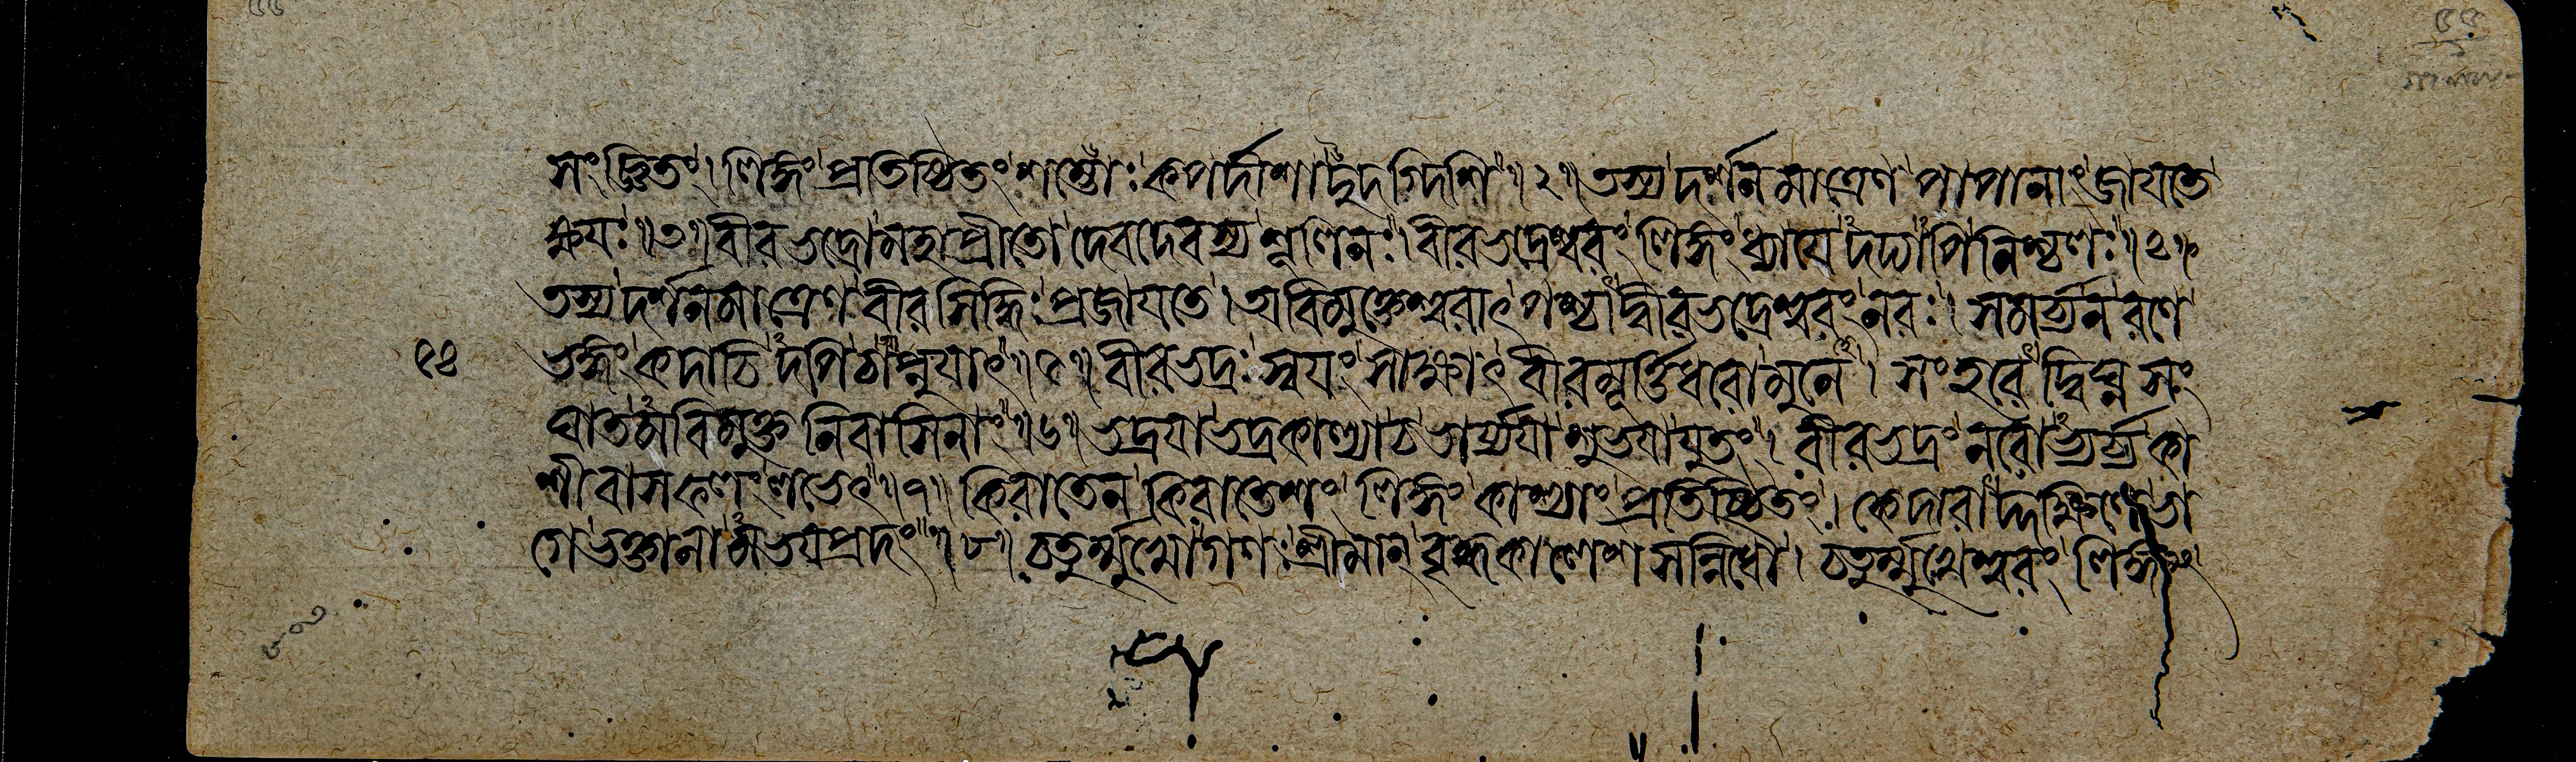 ৫৫
৫৫
সংজ্ঞিতং। লিঙ্গং প্রতিষ্ঠিতং শম্ভোঃ কপর্দীশাদুদগ্দিশি॥ ২॥ তস্য দর্শনমাত্রেণ পাপানাং জায়তে
ক্ষয়ঃ॥ ৩॥ বীরভদ্রো মহাপ্রীতো দেবদেবস্য শূলিনঃ। বীরভদ্রেশ্বরং লিঙ্গং ধ্যায়েদদ্যাপি নিশ্চলঃ॥ ৪॥
তস্য দর্শনমাত্রেণ বীরসিদ্ধিঃ প্রজায়তে। অবিমুক্তেশ্বরাৎ পশ্চাদ্বীরভদ্রেশ্বরং নরঃ। সমর্চ্য ন রণে
১৪ ভঙ্গং কদাচিদপি চাপ্নুয়াৎ॥ ৫॥ বীরভদ্রঃ স্বয়ং সাক্ষাৎ বীরমূর্ত্তিধরো মুনে। সংহরেদ্বিঘ্নসং
ঘাতমবিমুক্তনিবাসিনাং॥ ৬॥ ভদ্রয়া ভদ্রকাল্যা চ ভার্য্যয়া শুভয়া যুতং। বীরভদ্রং নরোভ্যর্চ্চ্য কা
শীবাসফলং লভেৎ॥ ৭॥ কিরাতেন কিরাতেশং লিঙ্গং কাশ্যাং প্রতিষ্ঠিতং। কেদারাদ্দক্ষিণে ভা
গে ভক্তানামভয়প্রদং॥ ৮॥ চতুর্ম্মুখো গণঃ শ্রীমান্ বৃদ্ধকালেশসন্নিধৌ। চতুর্ম্মুখেশ্বরং লিঙ্গং